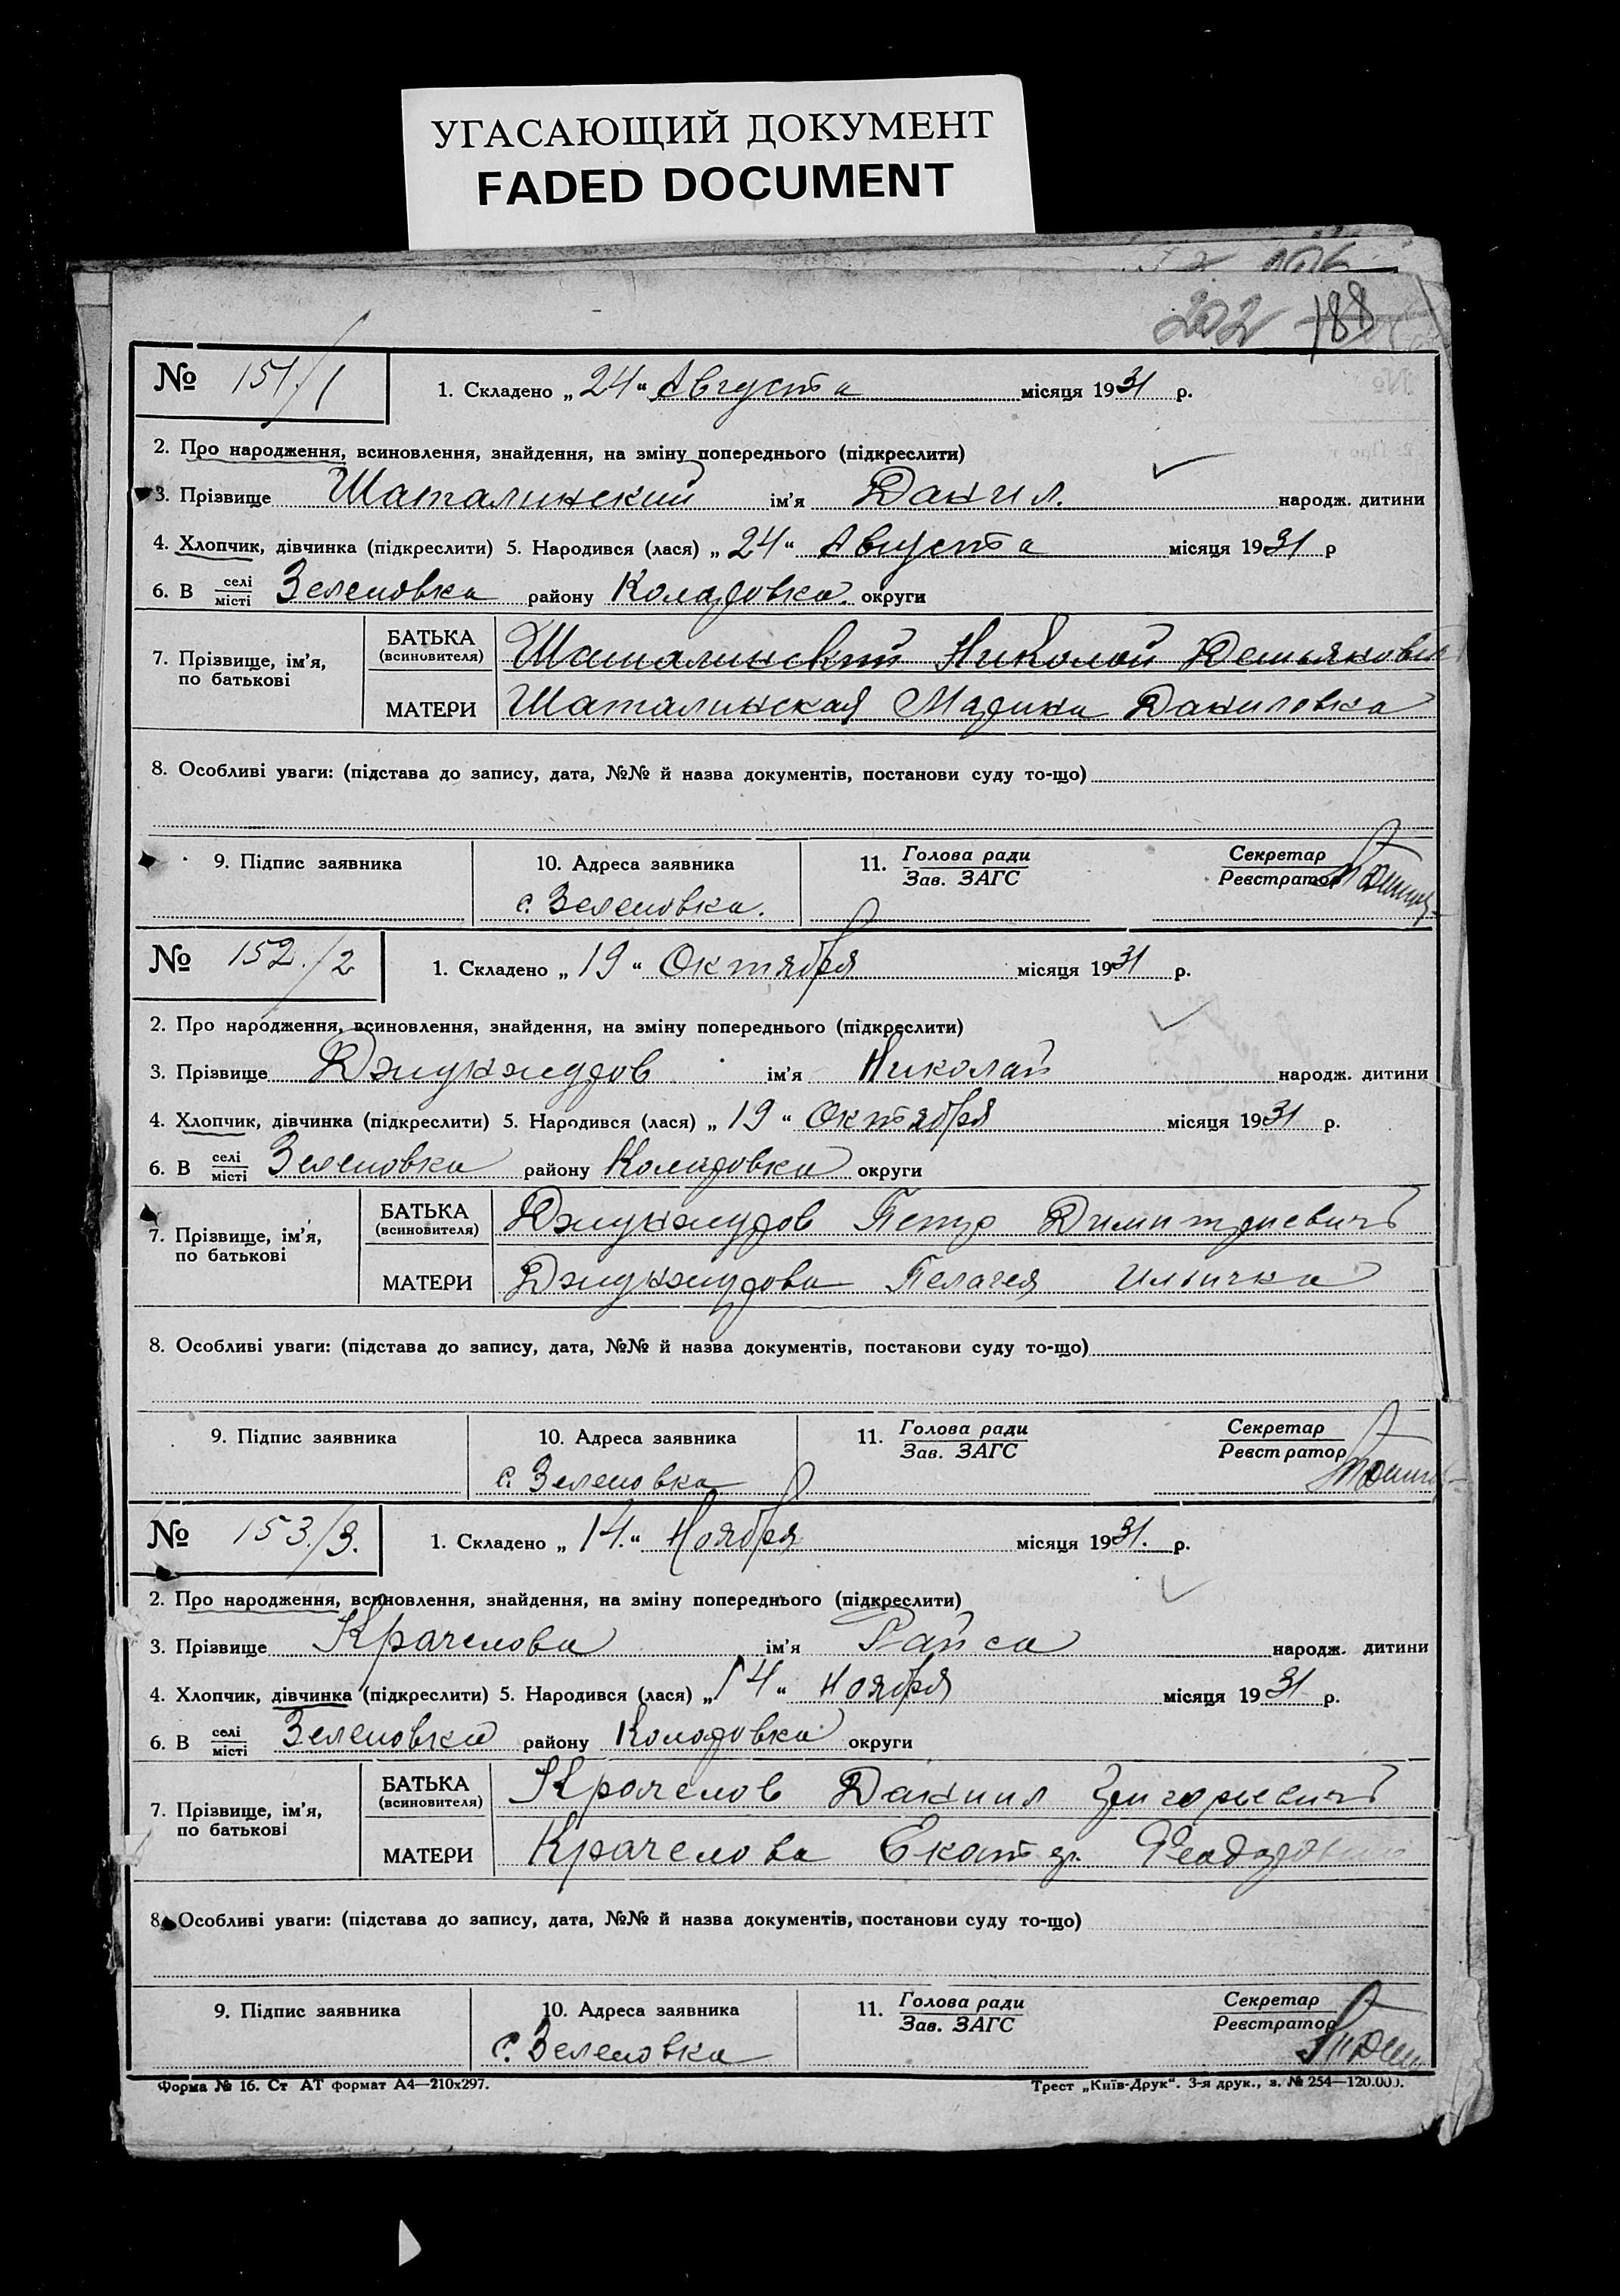 УГАСАЮЩИЙ ДОКУМЕНТ
FADED DOCUMENT
202 188
№ 151./1 1. Складено „24“ Августа місяця 1931 р.
2. Про народження, всиновлення, знайдення, на зміну попереднього (підкреслити)
3. Прізвище Шаталинский ім’я Данил. народж. дитини
4. Хлопчик, дівчинка (підкреслити) 5. Народився (лася) „24“ Августа місяця 1931 р
6. В селі/місті Зеленовка району Коларовка. округи
7. Прізвище, ім’я, по батькові
БАТЬКА (всиновителя) Шаталинский Николай
МАТЕРИ Шаталинская Марина Даниловна
8. Особливі уваги: (підстава до запису, дата, №№ й назва документів, постанови суду то-що)
9. Підпис заявника 10. Адреса заявника 11. Голова ради/Зав. ЗАГС Секретар/Реєстратор
с. Зеленовка.
№ 152./2 1. Складено „19“ Октября місяця 1931 р.
2. Про народження, всиновлення, знайдення, на зміну попереднього (підкреслити)
3. Прізвище Джунжуров ім’я Николай народж. дитини
4. Хлопчик, дівчинка (підкреслити) 5. Народився (лася) „19“ Октября місяця 1931 р.
6. В селі/місті Зеленовка району Коларовка округи
7. Прізвище, ім’я, по батькові
БАТЬКА (всиновителя) Джунжуров Петр Димитриевичъ
МАТЕРИ Джунжурова Пелагея Ильична
8. Особливі уваги: (підстава до запису, дата, №№ й назва документів, постанови суду то-що)
9. Підпис заявника 10. Адреса заявника 11. Голова ради/Зав. ЗАГС Секретар/Реєстратор
с. Зеленовка
№ 153./3. 1. Складено „14.“ Ноября місяця 1931. р.
2. Про народження, всиновлення, знайдення, на зміну попереднього (підкреслити)
3. Прізвище Крачелова ім’я Раиса народж. дитини
4. Хлопчик, дівчинка (підкреслити) 5. Народився (лася) „14“ Ноября місяця 1931 р.
6. В селі/місті Зеленовка району Коларовка округи
7. Прізвище, ім’я, по батькові
БАТЬКА (всиновителя) Крачелов Даниил Григорьевичъ
МАТЕРИ Крачелова Екатер.
8. Особливі уваги: (підстава до запису, дата, №№ й назва документів, постанови суду то-що)
9. Підпис заявника 10. Адреса заявника 11. Голова ради/Зав. ЗАГС Секретар/Реєстратор
с. Зеленовка
Форма № 16. Ст АТ формат А4—210х297. Трест „Київ-Друк“. 3-я друк., з. № 254—120.000.